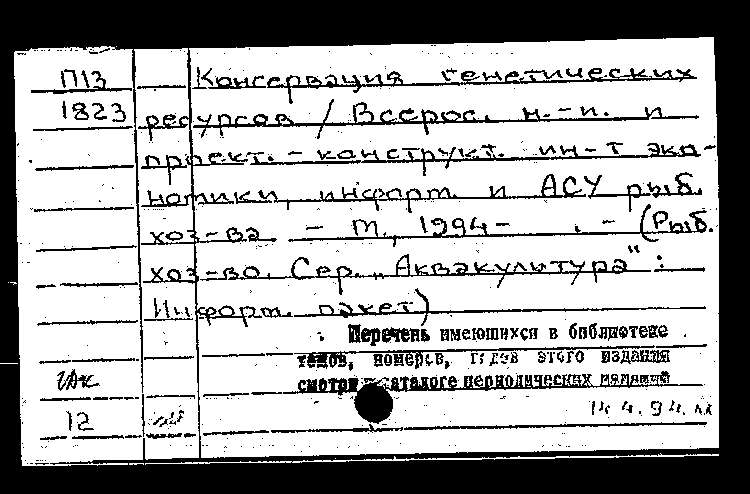 П13 Консервация генетических
1823 ресурсов / Всерос. н.-и. и
проект.-конструкт. ин-т эко-
номики, информ. и АСУ рыб.
хоз-ва. - М., 1994- . - (Рыб.
хоз-во. Сер. „Аквакультура":
Информ. пакет)
Перечень имеющихся в библиотеке
томов, номеров, годов этого издания
смотри в каталоге периодических изданий
12
14.4.94.